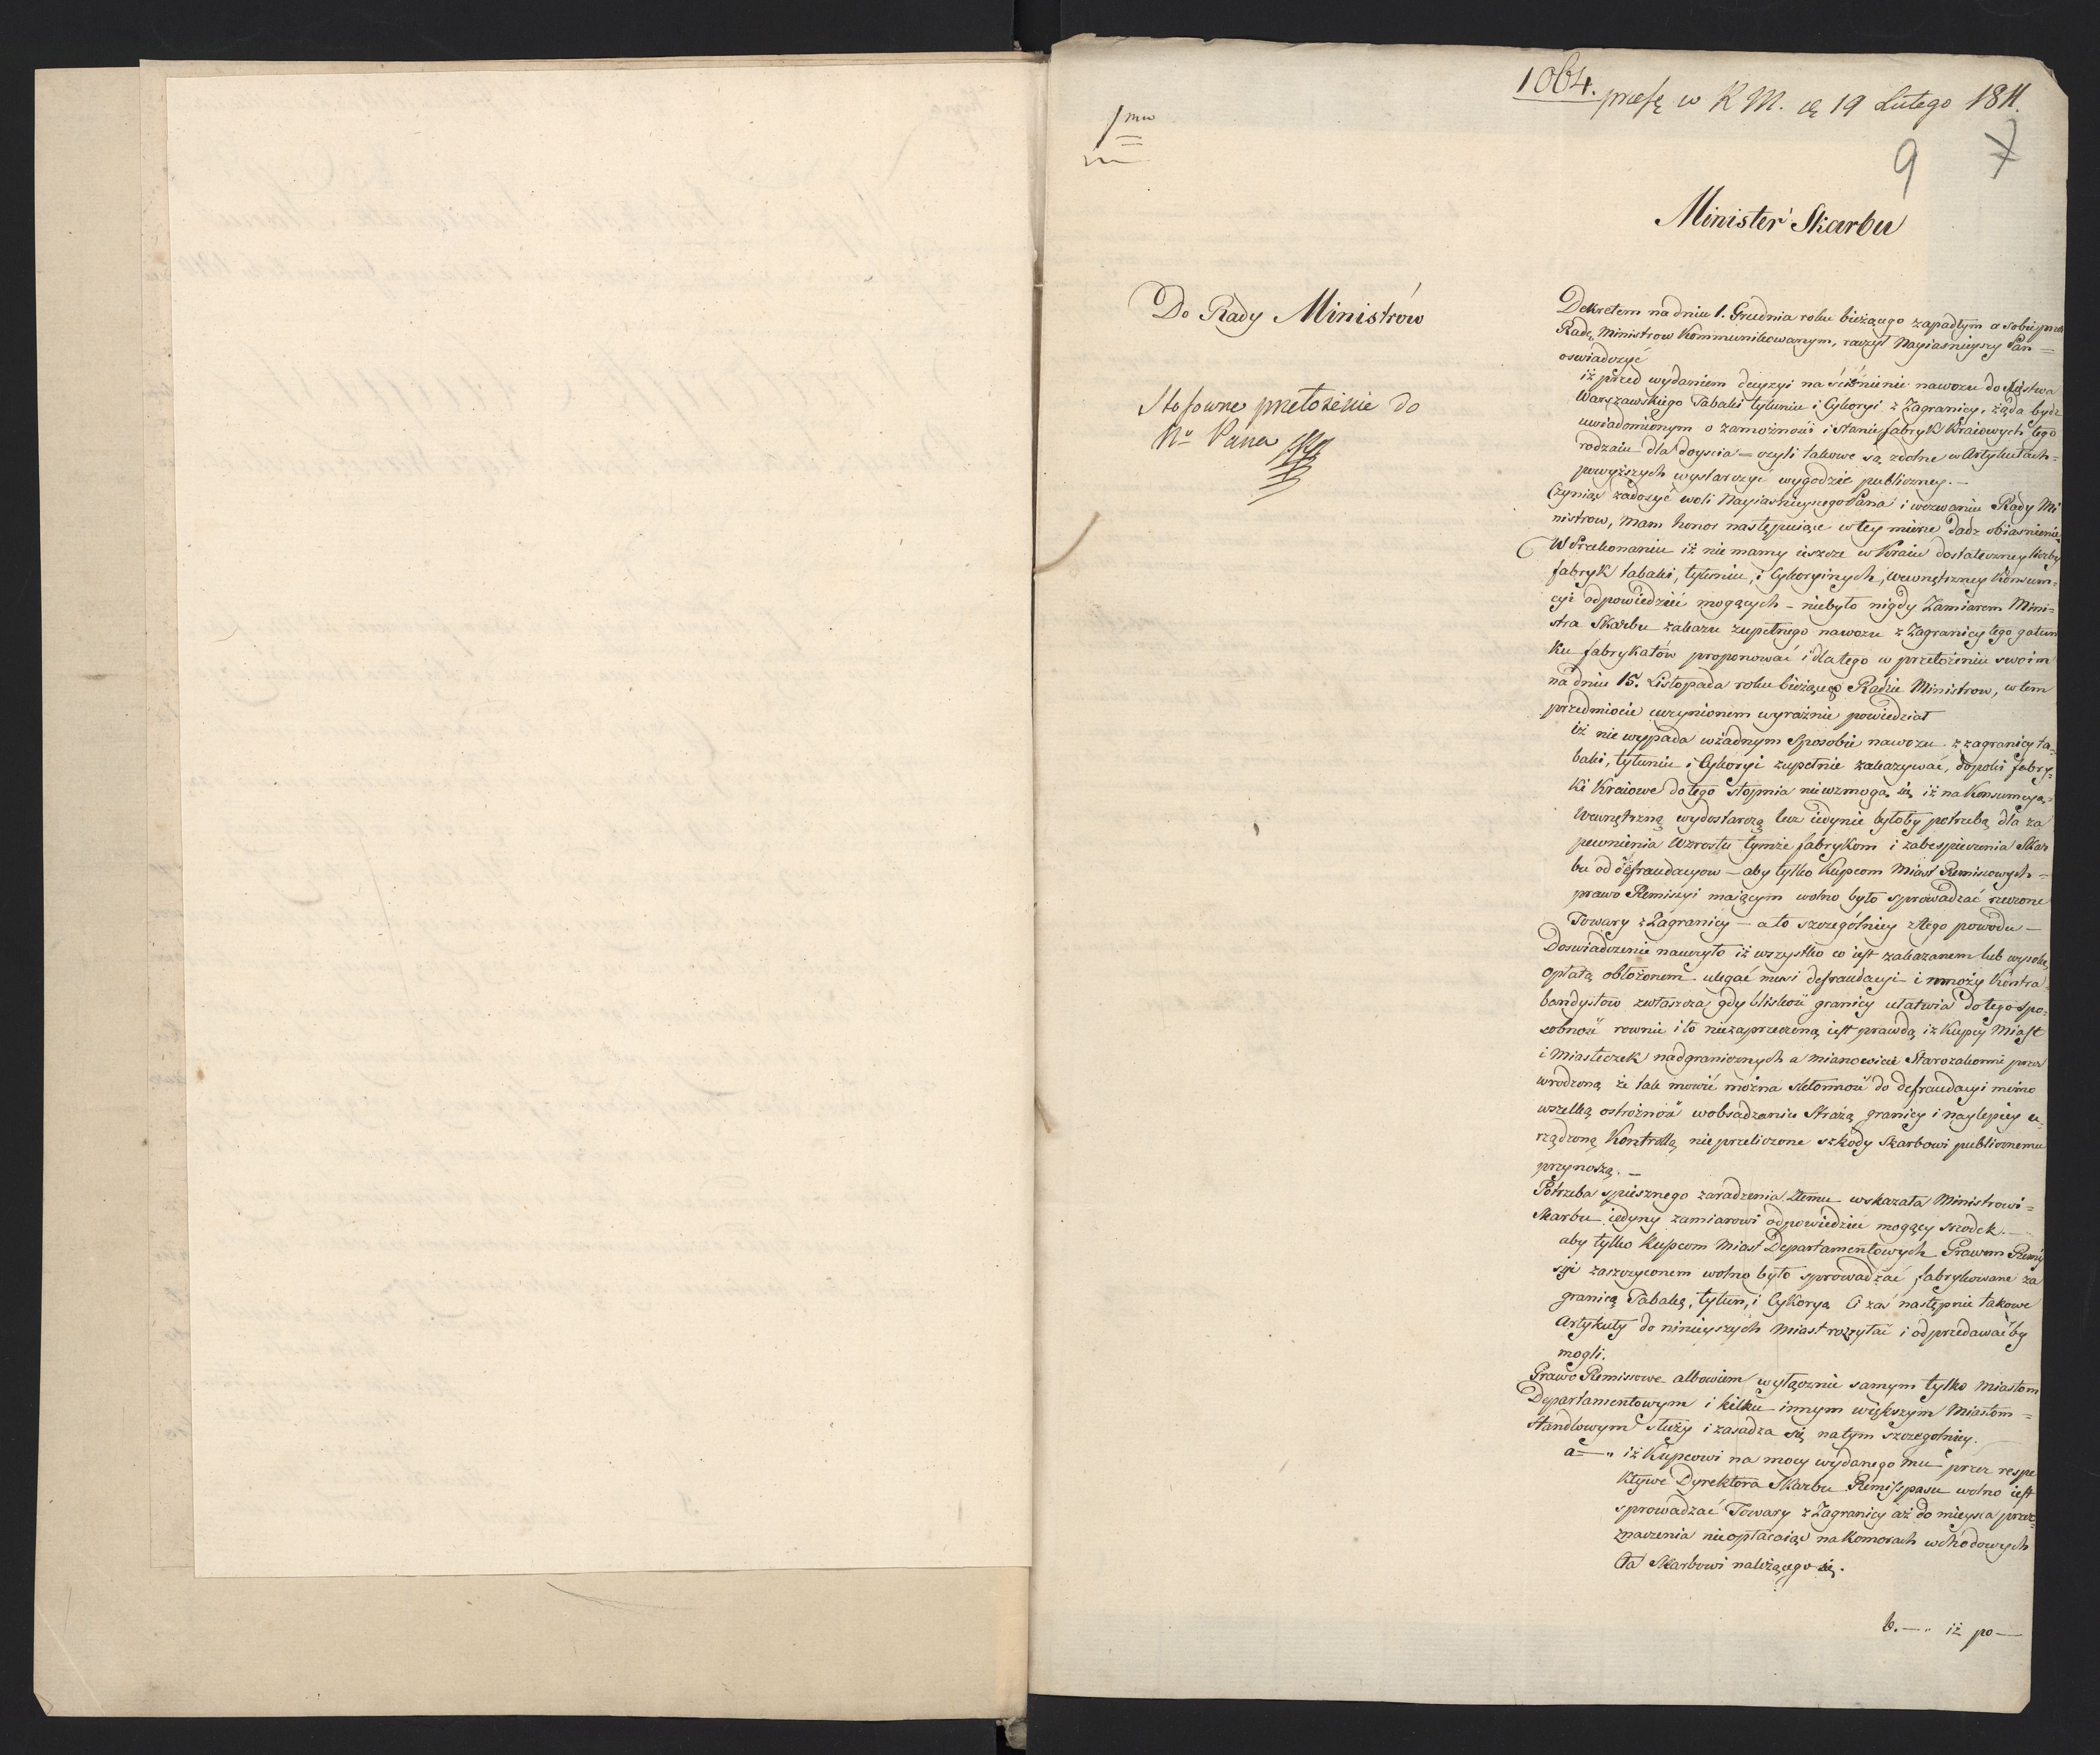 1064. w K M. 19 Lutego 1811.
9 7
Minister Skarbu
Do Rady Ministrów
Stosowne przełożenie do
Pana
Dekretem na dniu 1. Grudnia roku bieżącego zapadłym a sobie przez
Radę Ministrow Kommunikowanym, raczył Nayiasnieyszy Pan =
oswiadczyć
iż przed wydaniem decyzyi na ściśnienie nawozu do Xięstwa
Warszawskiego Tabaki tytuniu i Cykoryi z Zagranicy, żąda bydz
uwiadomionym o zamożności i stanie fabryk Kraiowych tego
rodzaiu dla doyscia – czyli takowe są zdolne w Artykułach =
powyższych wystarczyć wygodzie publiczney. –
Czyniąc zadosyć woli Nayiasnieyszego Pana i wezwaniu Rady Mi
nistrow, mam honor następuiące w tey mierze dadz obiasnienie
W Przekonaniu iż nie mamy ieszcze w Kraiu dostateczney liczby
fabryk tabaki, tytuniu, i Cykoryinych, wewnętrzney Konsum=
cyi odpowiedzieć mogących – niebyło nigdy Zamiarem Mini=
stra Skarbu zakazu zupełnego nawozu z Zagranicy tego gatun
ku fabrykatów proponować i dlatego w przełożeniu swoim
na dniu 15. Listopada roku bieżącego Radzie Ministrow, w tem
przedmiocie uczynionem wyraźnie powiedział
iż nie wypada w żadnym sposobie nawozu z zagranicy ta=
baki, tytuniu i Cykoryi zupełnie zakazywać, dopoki fabry=
ki Kraiowe do tego stopnia nie wzmogą się iż na Konsumcyą =
wewnętrzną wydostarczą lecz iedynie byłoby potrzebą dla za
pewnienia wzrostu tymże fabrykom i zabespieczenia Skar
bu od defraudacyow – aby tylko Kupcom Miast Remissowych =
prawo Remissyi maiącym wolno było sprowadzać rzeczone
Towary z Zagranicy – a to szczególniey z tego powodu –
Doswiadczenie nauczyło iż wszystko co iest zakazanem lub wysoką
opłatą obłożonem ulegać musi defraudacyi i mnoży Kontra=
bandystow zwłaszcza gdy bliskość granicy ułatwia do tego spo=
sobność rownie i to niezaprzeczoną iest prawdą iż Kupcy Miast
i Miasteczek nadgranicznych a mianowicie Starozakonni przez
wrodzoną że tak mowić można skłonność do defraudacyi mimo
wszelką ostrożność w obsadzaniu Strażą granicy i naylepiey u=
rządzoną Kontrollą nieprzeliczone szkody Skarbowi publicznemu
przynoszą. –
Potrzeba spiesznego zaradzenia złemu wskazała Ministrowi =
Skarbu iedyny zamiarowi odpowiedzieć mogący srodek. –
aby tylko Kupcom Miast Departamentowych Prawem Remis
syi zaszczyconem wolno było sprowadzać fabrykowane za
granicą Tabakę, tytun, i Cykoryą Ci zaś następnie takowe
Artykuły do ninieyszych Miast rozsyłać i odprzedawać by
mogli.
Prawo Remissowe albowiem wyłącznie samym tylko Miastom
Departamentowym i kilku innym większym Miastom =
Handlowym służy i zasadza się na tym szczegolniey.
a – " iż Kupcowi na mocy wydanego mu przez respe
ktywe Dyrektora Skarbu Remisspasu wolno iest
sprowadzać Towary z Zagranicy aż do mieysca prze=
znaczenia nieopłacaiąc na Komorach wchodowych
Cła Skarbowi należącego się.
b. – " iż po –